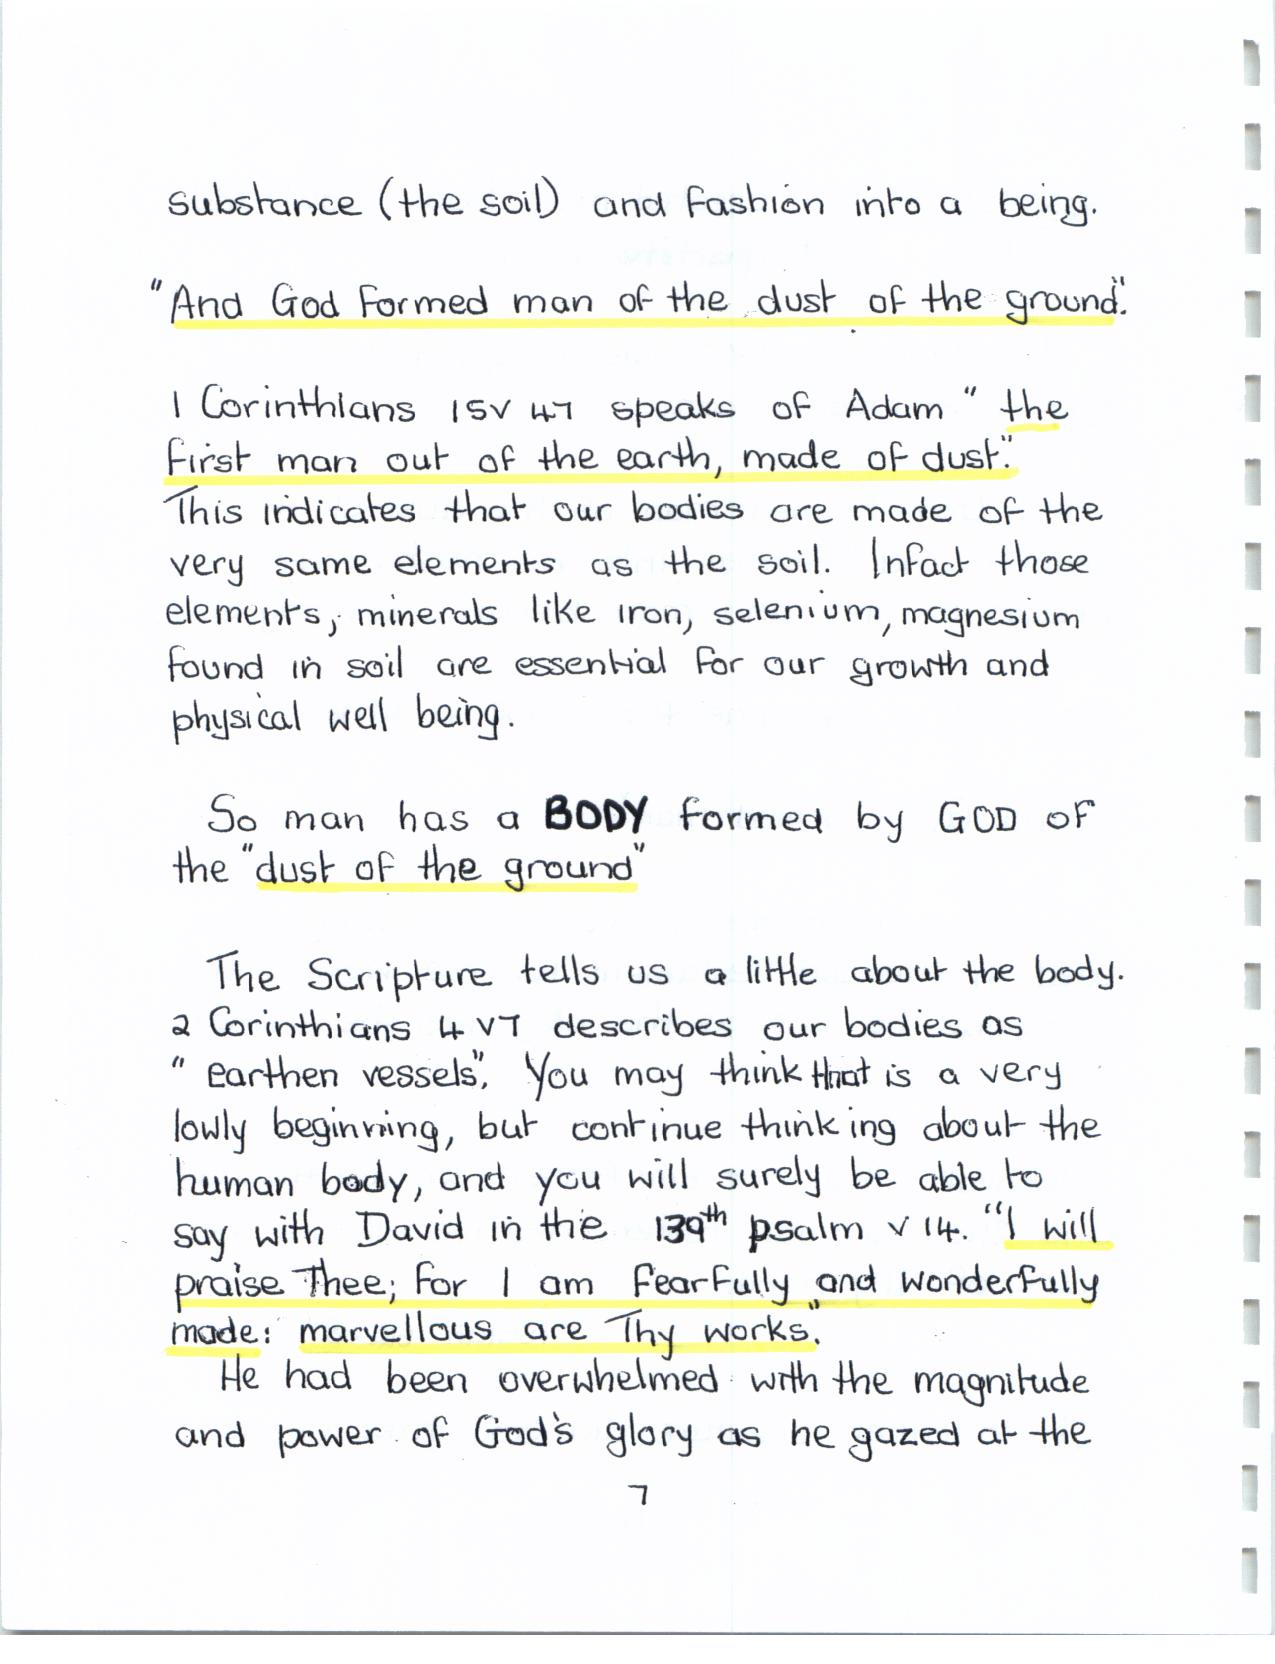 substance (the soil) and fashion into a being.
"And God formed man of the dust of the ground".
1 Corinthians 15v 47 speaks of Adam "the
first man out of the earth, made of dust."
This indicates that our bodies are made of the
very same elements as the soil. Infact those
elements, minerals like iron, selenium, magnesium
found in soil are essential for our growth and
physical well being.
So man has a BODY formed by GOD of
the "dust of the ground"
The Scripture tells us a little about the body.
2 Corinthians 4 v7 describes our bodies as
"earthen vessels". You may think that is a very
lowly beginning, but continue thinking about the
human body, and you will surely be able to
say with David in the 139th psalm v 14. "I will
praise Thee; for I am fearfully and wonderfully
made: marvellous are Thy works."
He had been overwhelmed with the magnitude
and power of God's glory as he gazed at the
7